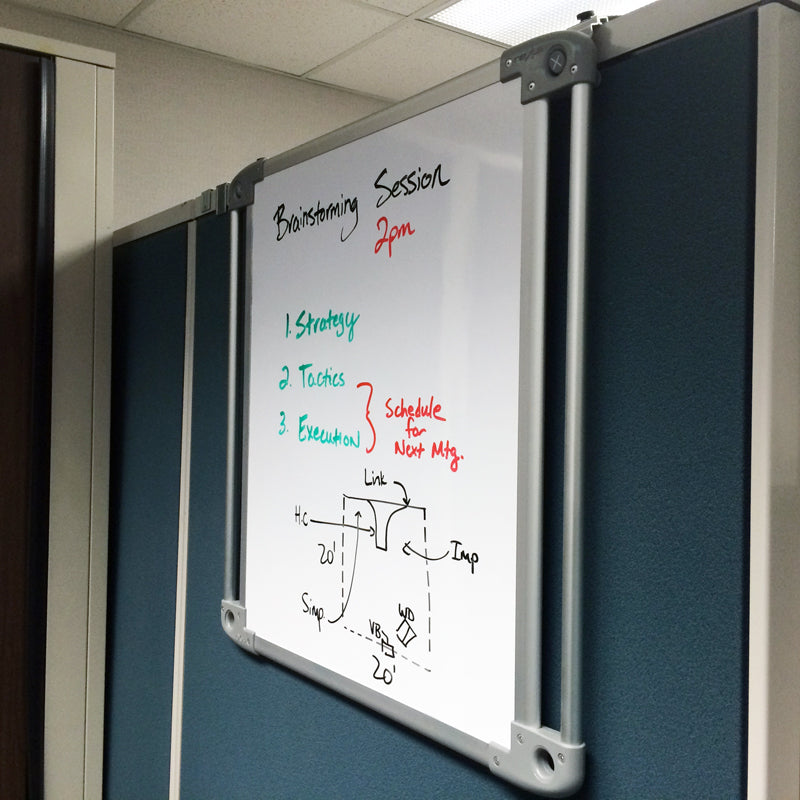 Brainstorming Session
2pm
1. Strategy
2. Tactics
3. Execution
Schedule
for
Next Mtg.
Link
H.C
20'
Imp
Simp.
WD
VB
20'